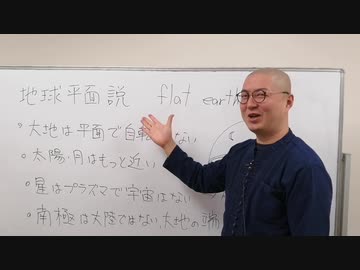 地球平面説 flat earth
・大地は平面で自転 ない
・太陽・月はもっと近い
・星はプラズマで宇宙はない
・南極は大陸ではない、大地の端